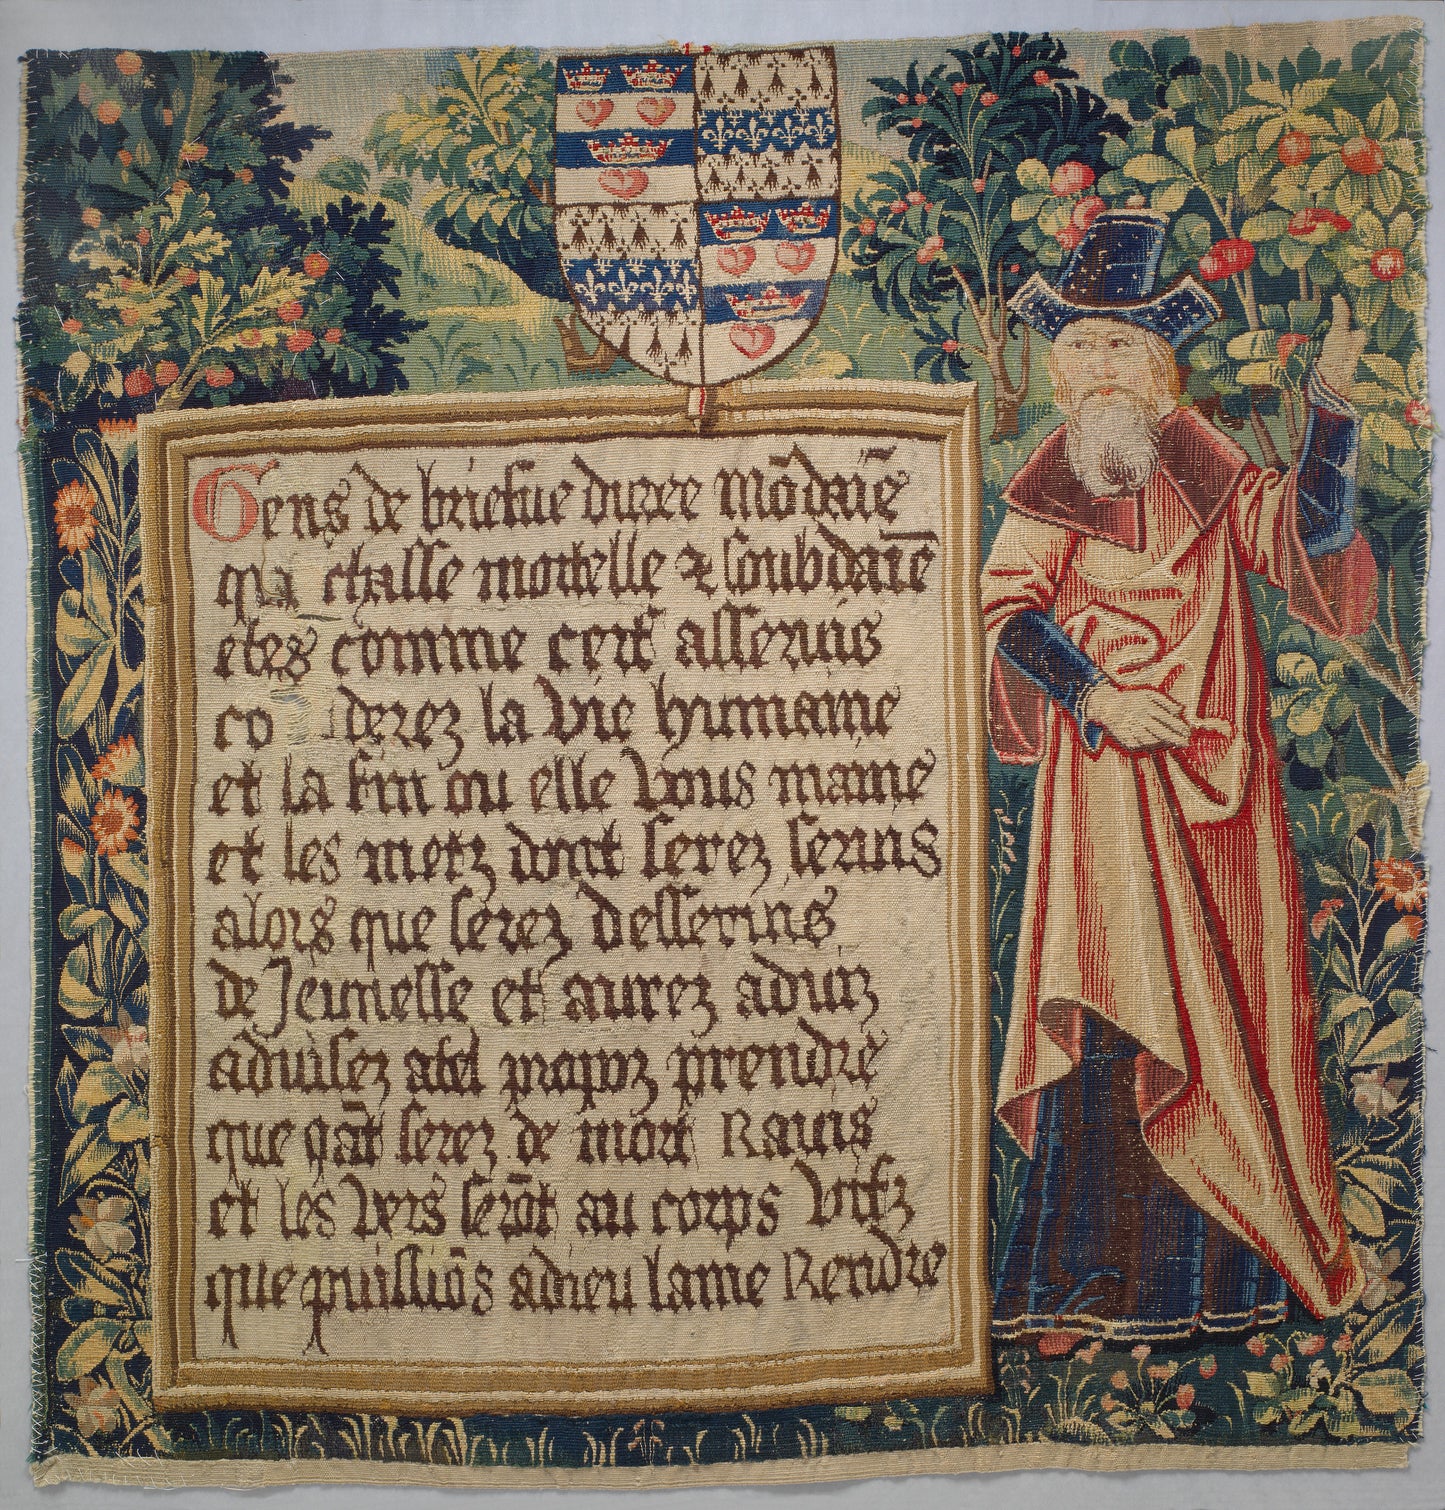 Gens de briefue duree mōdaīe
qu chasse mortelle & soubdaīe
etes comme cerf asseruis
co derez la vie humaine
et la fin ou elle vous maine
et les metz dont serez seruis
alors que serez desseruis
de Jeunesse et aurez aduiz
aduisez a tel propoz prendre
que qāt serez de mort Rauis
et les vers serōt au corps vifz
que puissiōs a dieu lame Rendre